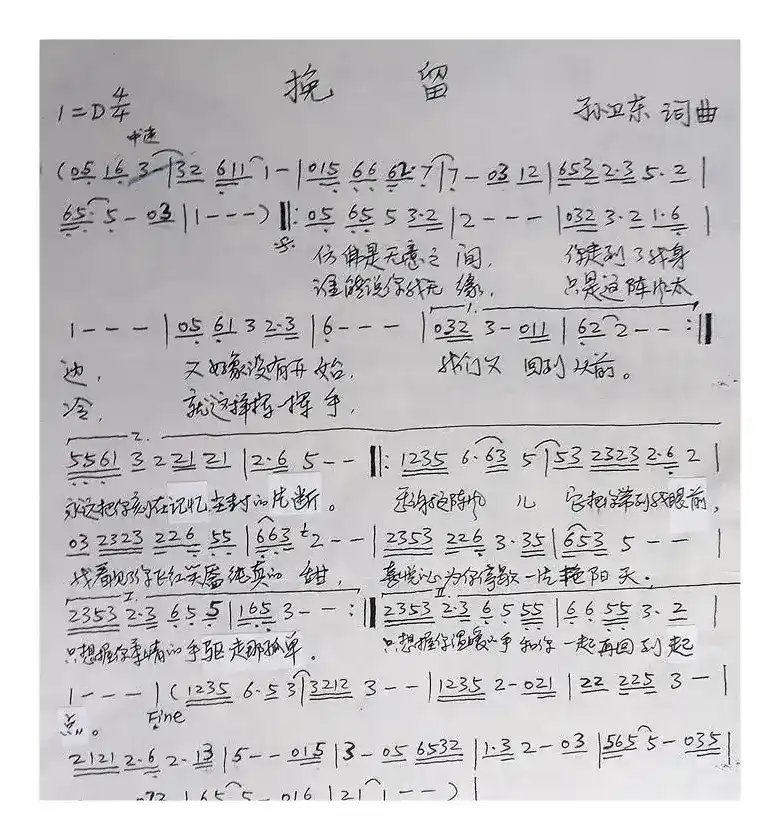 挽 留
1=D 4/4
孙卫东 词曲
中速
(05 16 3-|32 611 1-|015 66 62·7|7-03 12|653 2·3 5·2|
65·5-03|1---)‖:05 65 5 3·2|2---|032 3·2 1·6|
仿佛是无意之间, 你走到了我身
谁能说你我无缘, 只是这阵太
1---|05 61 3 2·3|6---|032 3-011|62 2--:‖
边, 又好象没有开始, 我们又回到以前。
冷, 就这样挥一挥手,
5561 3 2 21 21|2·6 5--‖:1235 6·63 5|53 2323 2·6 2|
永远把你刻在记忆尘封的片断。 这阵风儿 它把你带到我眼前,
03 2323 226 55|663 2--|2353 226 3·35|653 5--|
我看见了你飞红笑靥纯真的甜, 喜悦心为你停歇一片艳阳天。
2353 2·3 6 5 5|165 3--:‖2353 2·3 6 5 55|6 6 55 3·2|
只想握你柔情的手驱走那孤单。 只想握你温暖的手和你一起再回到起
1---|(1235 6·5 3|3212 3--|1235 2-021|22 225 3-|
点。 Fine
2121 2·6 2·13|5--015|3-05 6532|1·3 2-03|565 5-035|
|65 5-016|21 1--)|